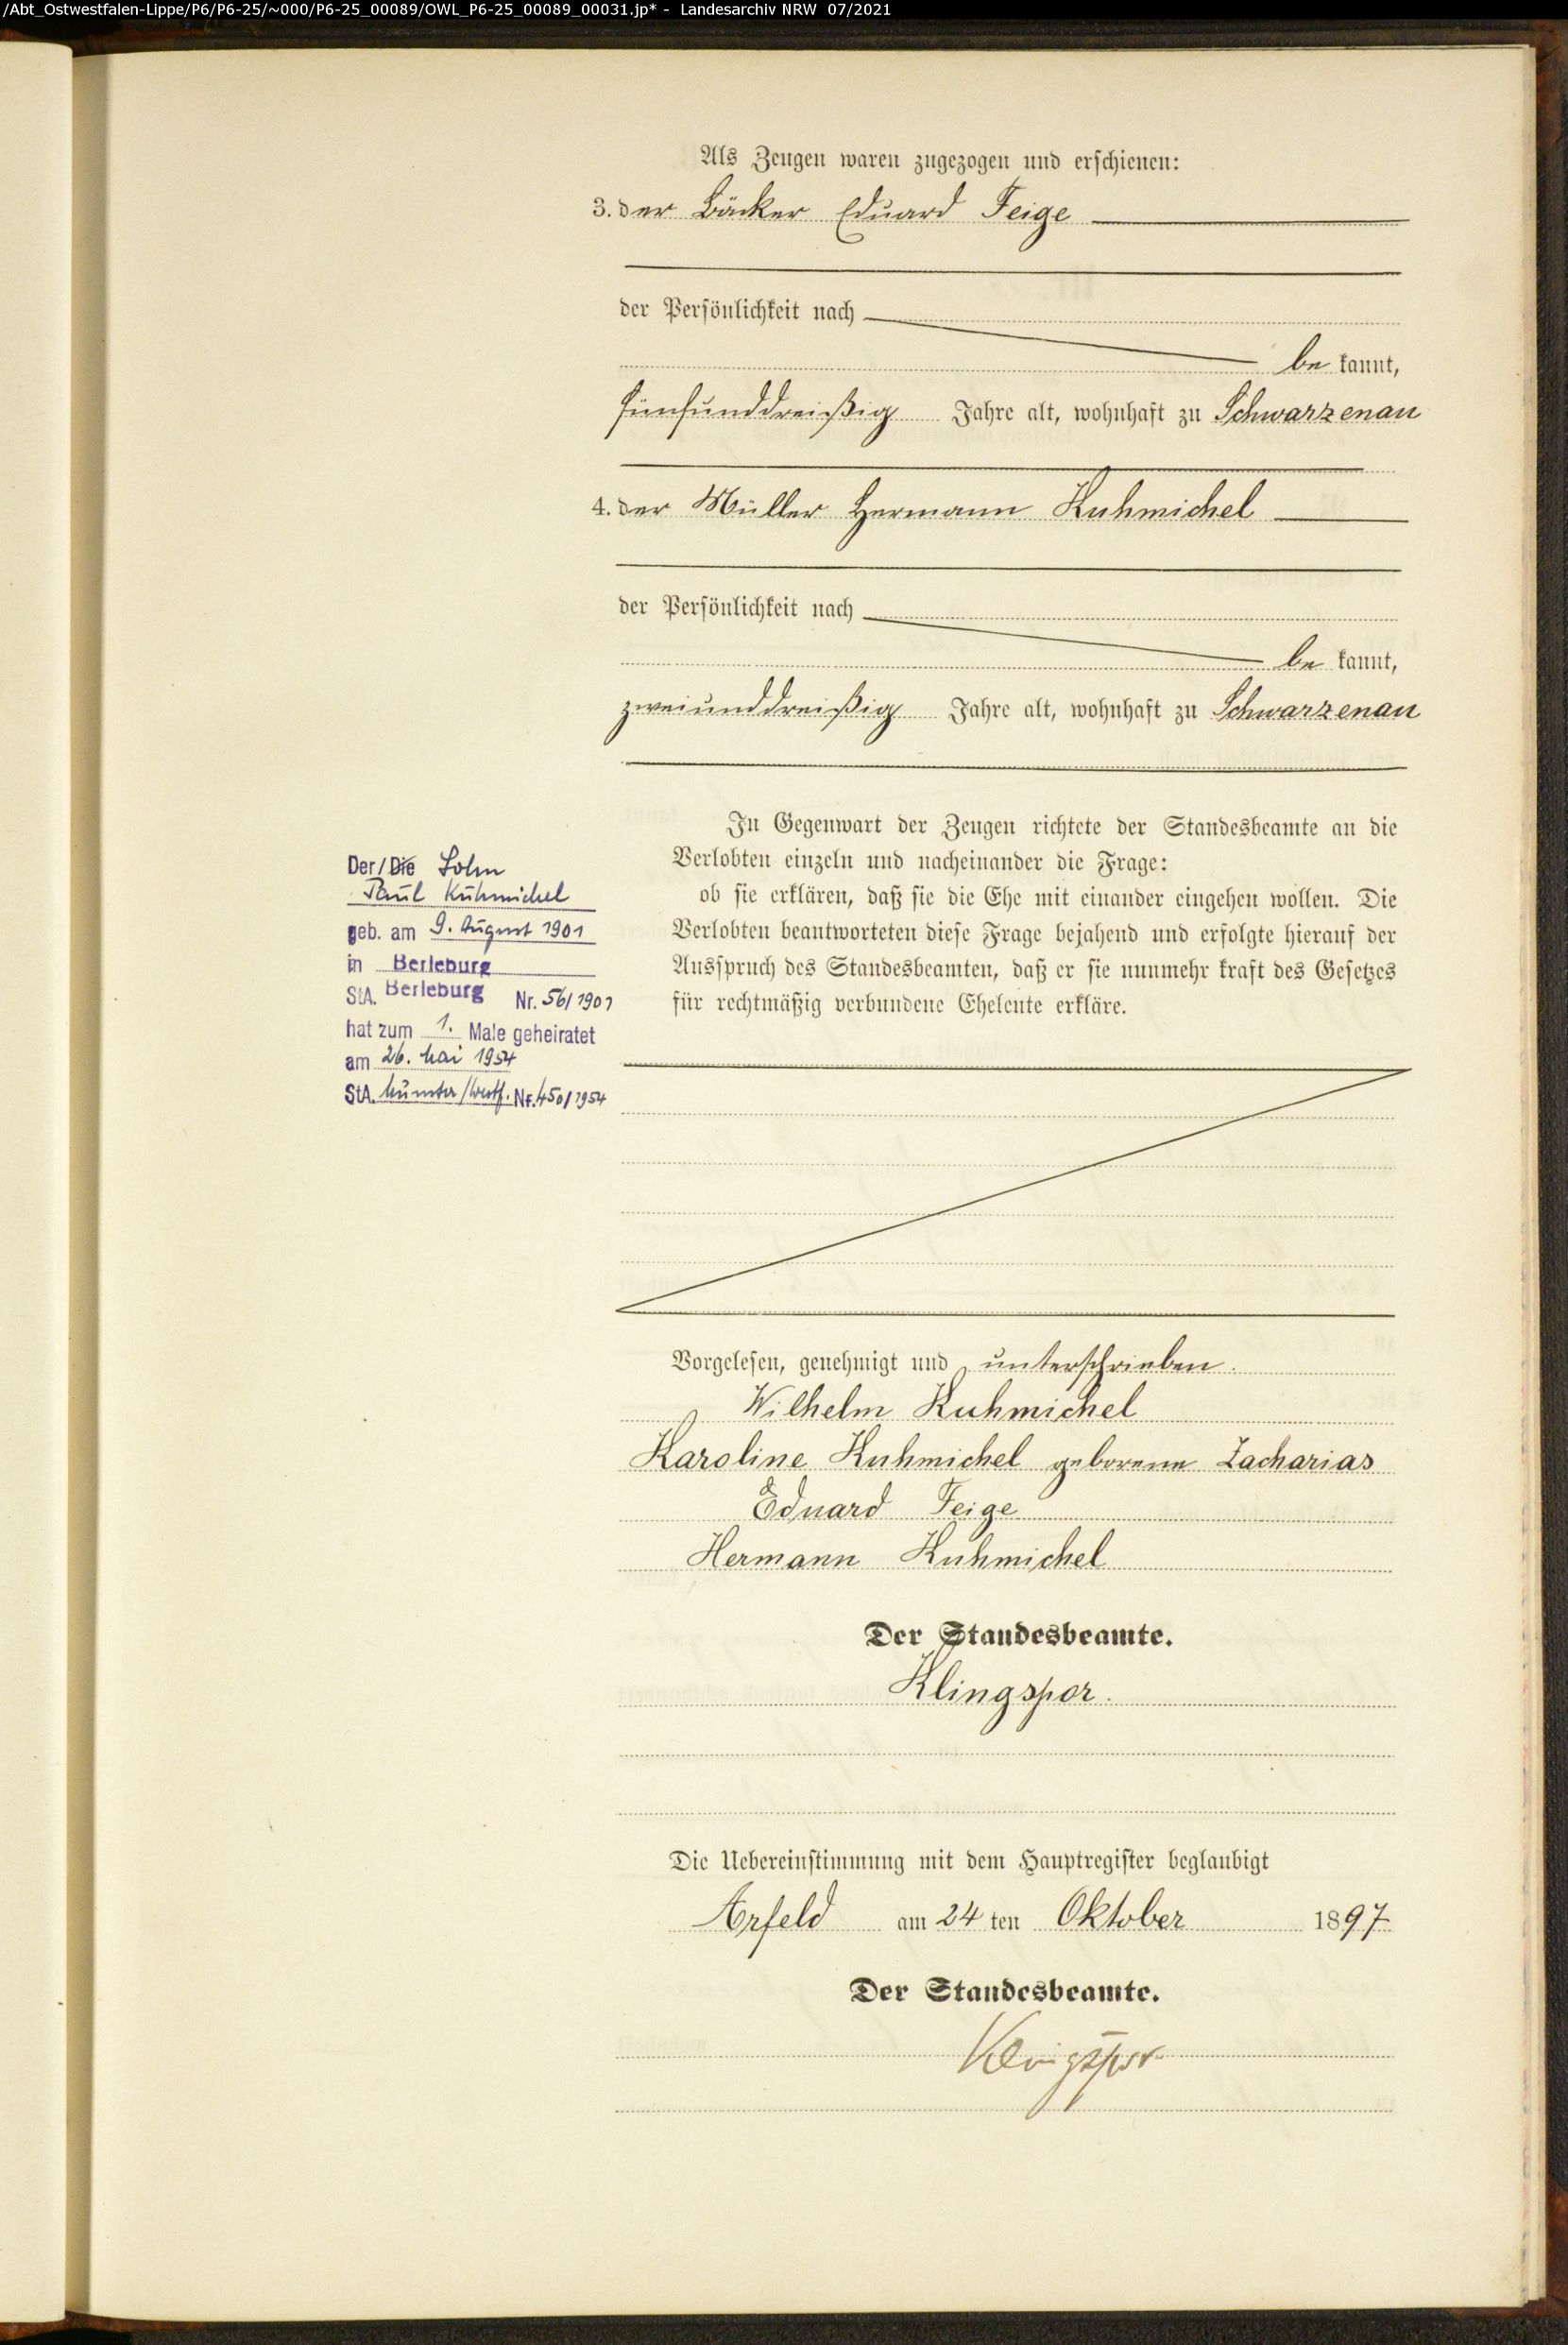 /Abt_Ostwestfalen-Lippe/P6/P6-25/~000/P6-25_00089/OWL_P6-25_00089_00031.jp* - Landesarchiv NRW 07/2021
Als Zeugen waren zugezogen und erschienen:
3. der Bäcker Eduard Feige
der Persönlichkeit nach
be kannt,
fünfunddreißig Jahre alt, wohnhaft zu Schwarzenau
4. der Müller Hermann Kuhmichel
der Persönlichkeit nach
be kannt,
zweiunddreißig Jahre alt, wohnhaft zu Schwarzenau
In Gegenwart der Zeugen richtete der Standesbeamte an die
Verlobten einzeln und nacheinander die Frage:
ob sie erklären, daß sie die Ehe mit einander eingehen wollen. Die
Verlobten beantworteten diese Frage bejahend und erfolgte hierauf der
Ausspruch des Standesbeamten, daß er sie nunmehr kraft des Gesetzes
für rechtmäßig verbundene Eheleute erkläre.
Der/Die Sohn
Paul Kuhmichel
geb. am 9. August 1901
in Berleburg
StA. Berleburg Nr. 56/1901
hat zum 1. Male geheiratet
am 26. Mai 1954
StA. Münster/Westf. Nr. 450/1954
Vorgelesen, genehmigt und unterschrieben.
Wilhelm Kuhmichel
Karoline Kuhmichel geborene Zacharias
Eduard Feige
Hermann Kuhmichel
Der Standesbeamte.
Klingspor.
Die Uebereinstimmung mit dem Hauptregister beglaubigt
Arfeld am 24 ten Oktober 1897
Der Standesbeamte.
Klingspor